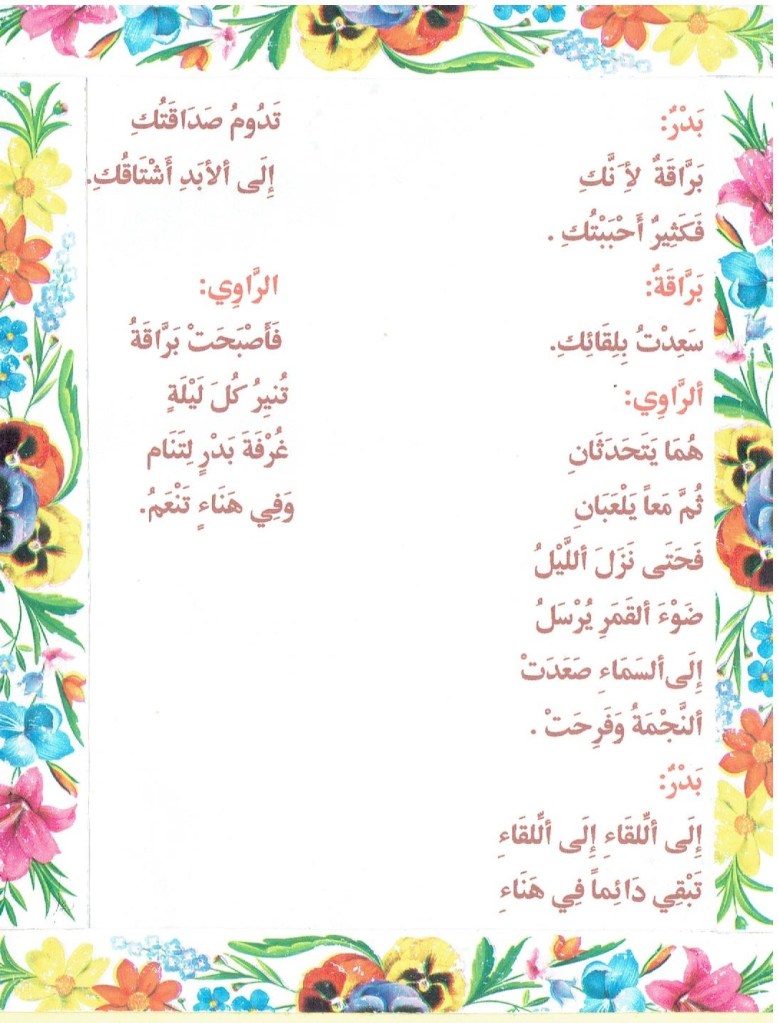 بَدْرٌ:
بَرَّاقَةٌ لأَِنَّكِ
فَكَثِيرٌ أَحْبَبْتُكِ .
بَرَّاقَةٌ:
سَعِدْتُ بِلِقَائِكِ.
ألرَّاوِي:
هُمَا يَتَحَدَثَانِ
ثُمَّ مَعاً يَلْعَبَانِ
فَحَتَى نَزَلَ أللَّيْلُ
ضَوْءَ ألقَمَرِ يُرْسَلُ
إِلَى ألسَمَاءِ صَعَدَتْ
ألنَّجْمَةُ وَفَرِحَتْ .
بَدْرٌ:
إِلَى أللِّقَاءِ إِلَى أللِّقَاءِ
تَبْقِي دَائِماً فِي هَنَاءِ
تَدُومُ صَدَاقَتُكِ
إِلَى ألأبَدِ أَشْتَاقُكِ.
الرَّاوِي:
فَأَصْبَحَتْ بَرَّاقَةُ
تُنيِرُ كُلَ لَيْلَةٍ
غُرْفَةَ بَدْرٍ لِتَنَام
وَفِي هَنَاءٍ تَنْعَمُ.